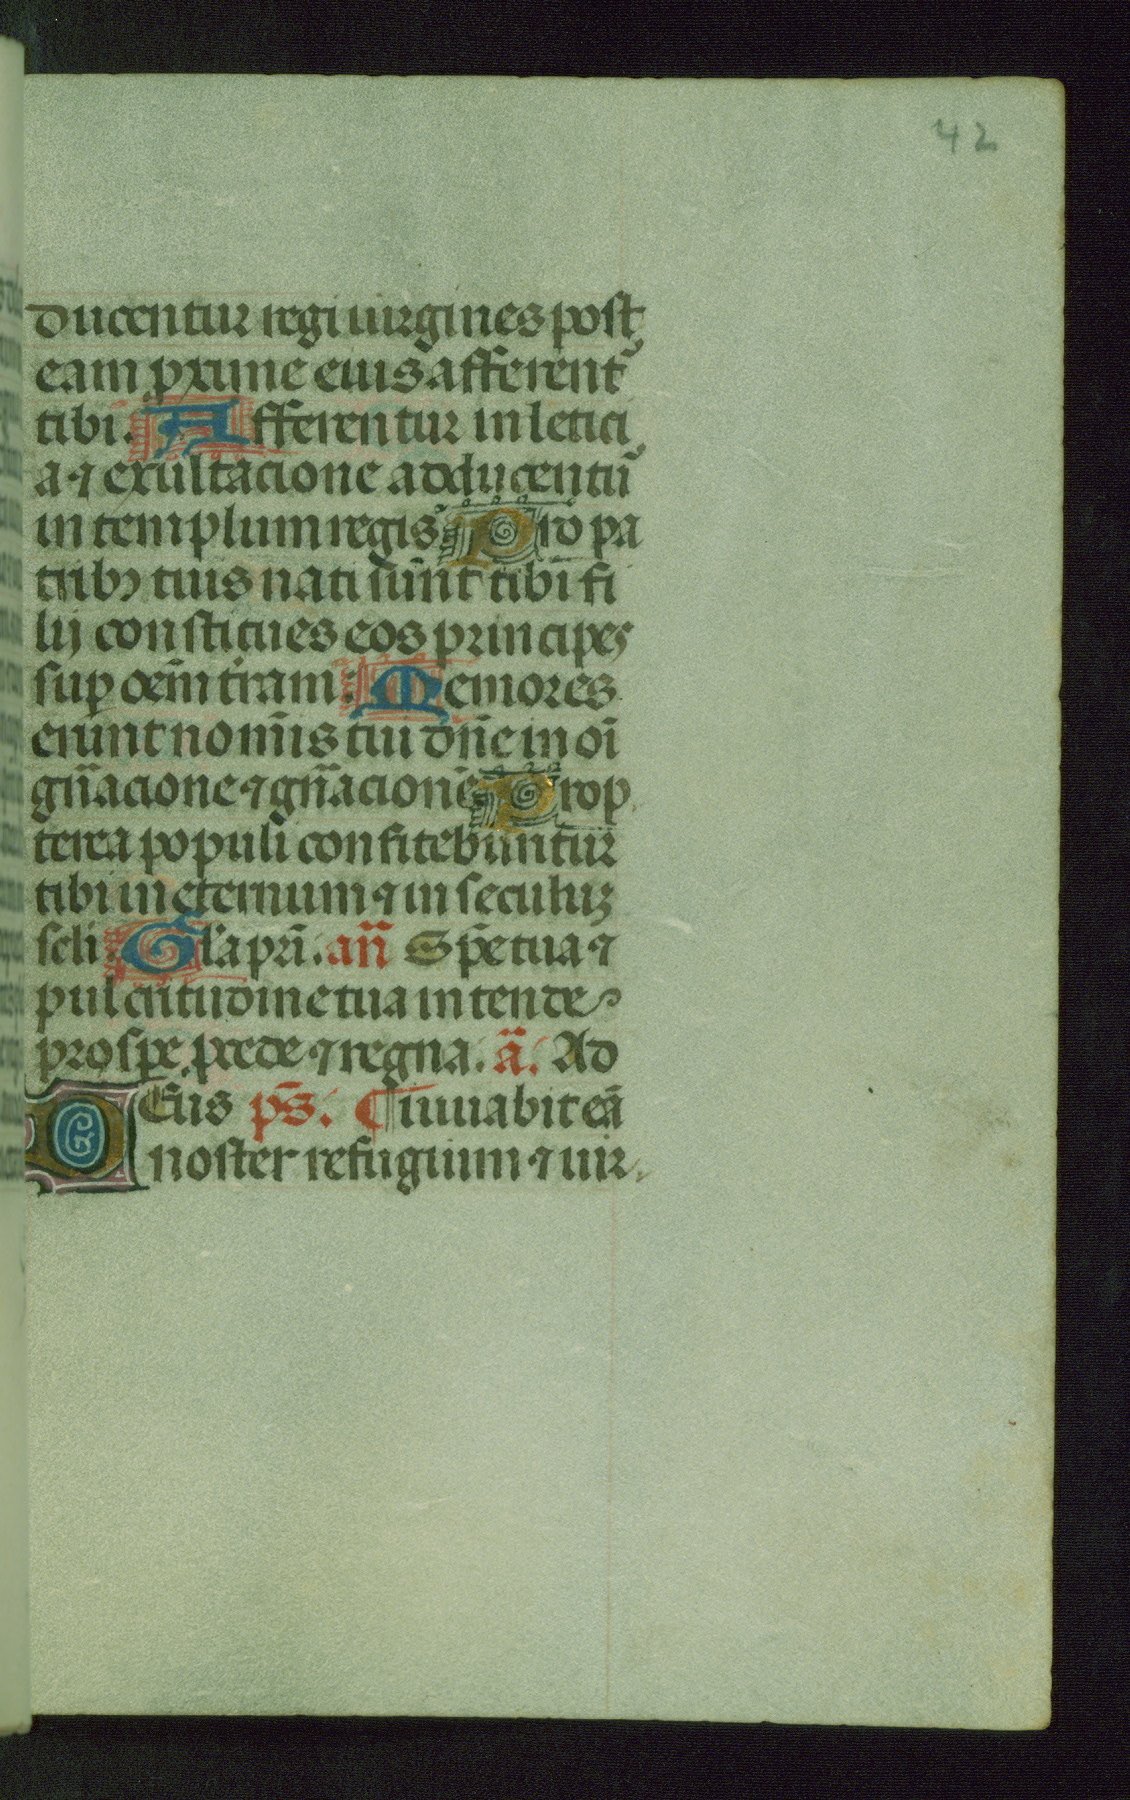 42
ducentur regi uirgines post
eam ꝓxime eius afferent᷑
tibi. Afferentur in letici
a ⁊ exultacione adducentu᷑
in templum regis. Pro pa
tribꝫ tuis nati sunt tibi fi
lij constitues eos principes
suꝑ oēm t̄ram. Memores
erunt nom̄is tui dn̄e in oī
gn̄acione ⁊ gn̄acionē. Prop
terea populi confitebuntur
tibi in eternum ⁊ in seculuꝫ
scli. Gl'a pr̄i. an̄ Spe tua ⁊
pulcritudine tua intende
prospe ꝓcede ⁊ regna. ā. Ad
DEus ps̄. ¶ iuuabit eā
noster refugium ⁊ uir